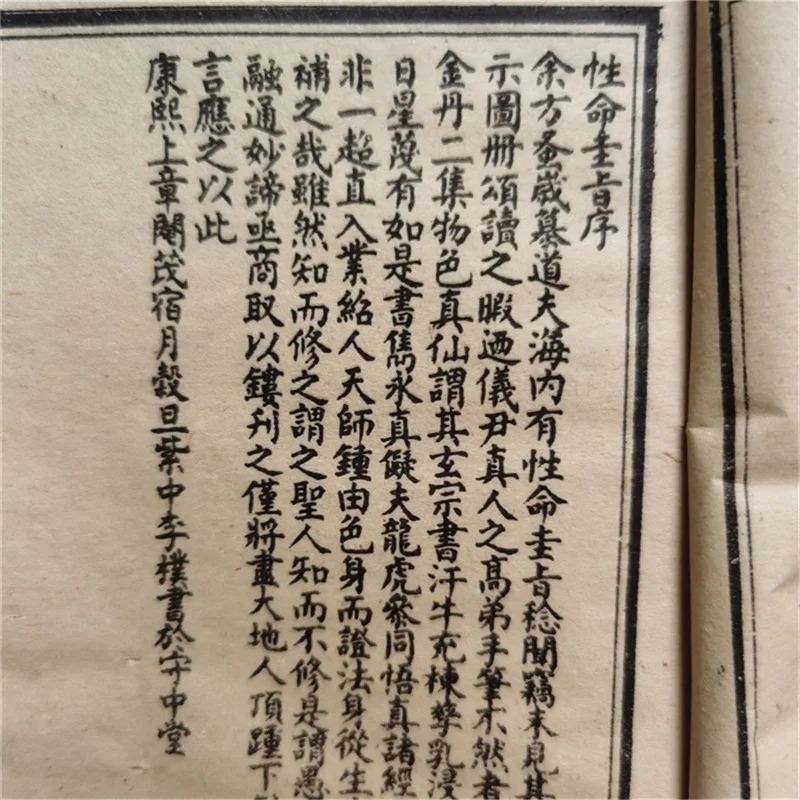 性命圭旨序
余方蚤歲慕道夫海内有性命圭旨稔聞竊未見其
示圖册頌讀之暇迺儀尹真人之高弟手筆不然者
金丹二集物色真仙謂其玄宗書汗牛充棟孳乳浸
日星蔑有如是書雋永真儗夫龍虎參同悟真諸經
非一超直入業紹人天師鍾由色身而證法身從生
補之哉雖然知而修之謂之聖人知而不修是謂愚
融通妙諦亟商取以鏤刋之僅將盡大地人頂踵下
言應之以此
康熙上章閹茂宿月穀旦紫中李樸書於守中堂